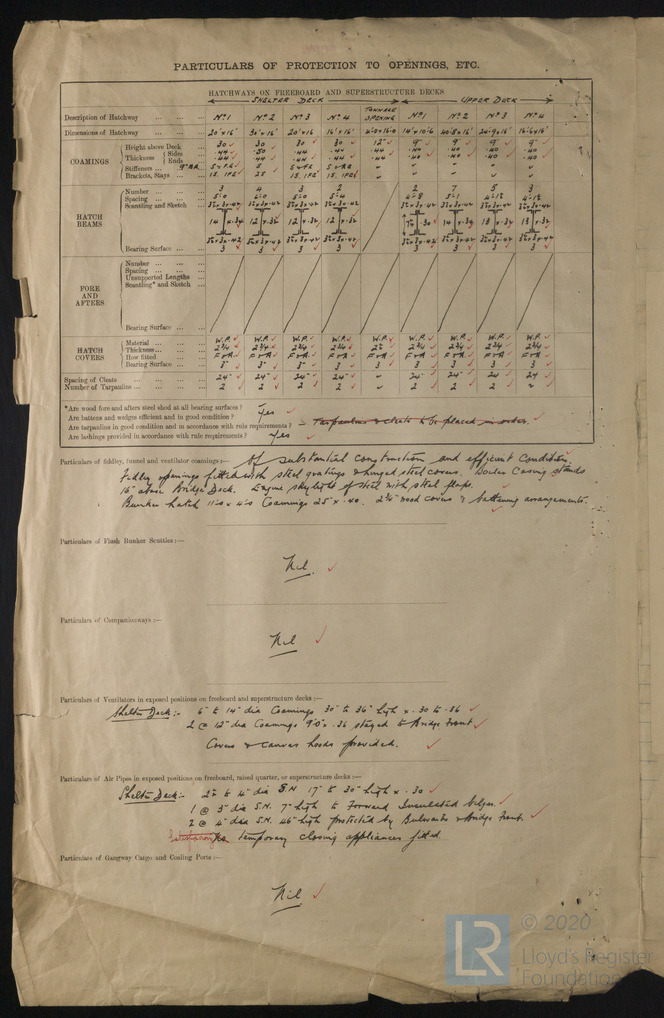 PARTICULARS OF PROTECTION TO OPENINGS, ETC.
HATCHWAYS ON FREEBOARD AND SUPERSTRUCTURE DECKS
SHELTER DECK TONNAGE OPENING UPPER DECK
Description of Hatchway ... ... ... No 1 No 2 No 3 No 4 No 1 No 2 No 3 No 4
Dimensions of Hatchway ... ... ... 20' x 16' 30' x 16' 20' x 16 16' x 16'
COAMINGS
Height above Deck ... 30 30 30 30 12" 9" 9" 9" 9"
Thickness Sides ... .44 .44 .44 .44 .44 .44 .40 .40 .40
Ends ... .44 .50 .44 .44 .44 .44 .40 .40 .40
Stiffeners ...
Brackets, Stays ...
HATCH BEAMS
Number ... 3 4 3 2 2 7 5 3
Spacing ... 5-0 6-0 5-0 5-4 4-8 5-1
Scantling and Sketch ...
14 x .34 12 x .32 12 x .32 12 x .32
Bearing Surface ... 3 3 3 3 3 3 3 3
FORE AND AFTERS
Number ...
Spacing ...
Unsupported Lengths ...
Scantling* and Sketch ...
Bearing Surface ...
HATCH COVERS
Material ... W.P. W.P. W.P. W.P. W.P. W.P. W.P. W.P. W.P.
Thickness ... 2 3/4 2 3/4 2 3/4 2 3/4 2 1/2 2 3/4 2 3/4 2 3/4 2 3/4
How fitted ... F & A F & A F & A F & A F & A F & A F & A F & A F & A
Bearing Surface ... 3" 3" 3" 3 3 3 3 3
Spacing of Cleats ... 24" 24" 24" 24" 24" 24" 24 24
Number of Tarpaulins ... 2 2 2 2 2 2 2
*Are wood fore and afters steel shod at all bearing surfaces?
Are battens and wedges efficient and in good condition? Yes
Are tarpaulins in good condition and in accordance with rule requirements? - Tarpaulins & cleats to be placed in order.
Are lashings provided in accordance with rule requirements? Yes
Particulars of fiddley, funnel and ventilator coamings:— Of substantial construction and efficient condition.
Fidley openings fitted with steel gratings & hinged steel covers. Boiler Casing stands
16" above Bridge Deck. Engine skylight of steel with steel flaps.
Bunker hatch 11'-0 x 4'-0 Coamings 25" x .40. 2 3/4" wood covers & battening arrangements.
Particulars of Flush Bunker Scuttles:—
Nil.
Particulars of Companionways:—
Nil
Particulars of Ventilators in exposed positions on freeboard and superstructure decks:—
Shelter Deck:- 6" to 14" dia Coamings 30" to 36" high x .30 to .36
2 @ 12" dia Coamings 9'0" x .36 stayed to Bridge Front
Covers & canvas hoods provided.
Particulars of Air Pipes in exposed positions on freeboard, raised quarter, or superstructure decks:—
Shelter Deck:- 2" to 4" dia S.N. 17" to 30" high x .30
1 @ 3" dia S.N. 7" high to Forward Insulated bilges.
2 @ 4" dia S.N. 46" high protected by Bulwarks & Bridge Front.
temporary closing appliances fitted.
Particulars of Gangway Cargo and Coaling Ports:—
Nil
LR © 2020
Lloyd's Register
Foundation